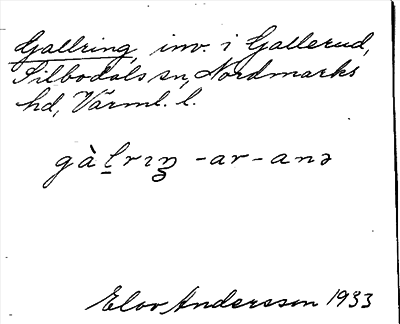 Gallring, inv. i Gallerud,
Silbodals sn, Nordmarks
hd, Värml. l.
gàl̲rɪŋ -ar -anə
Elov Andersson 1933